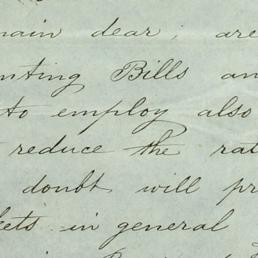 main dear; are
nting Bills an
to employ also
reduce the rat
doubt will pr
kets in general